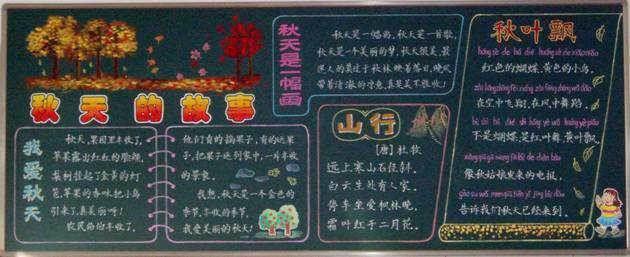 秋天的故事
我爱秋天
秋天,果园里丰收了,
苹果露出红红的脸颊,
梨树挂起了金黄的灯
笼,苹果的香味把小鸟
引来了,真美丽呀!
农民伯伯丰收了,
他们有的摘果子,有的运果
子,把果子运到家中,一片丰收
的景象。
我想,秋天是一个金色的
季节,丰收的季节,
我爱美丽的秋天!
秋天是一幅画
秋天是一幅画,秋天是一首歌,
秋天是一个美丽的梦,秋天很美,最
迷人的莫过于秋林映着落日,晚风
带着清凉的寒意,真是美不胜收!
山行
【唐】杜牧
远上寒山石径斜,
白云生处有人家。
停车坐爱枫林晚,
霜叶红于二月花。
秋叶飘
红色的蝴蝶,黄色的小鸟,
在空中飞翔,在风中舞蹈,
不是蝴蝶,是红叶舞,黄叶飘,
像秋姑娘发来的电报,
告诉我们秋天已经来到。